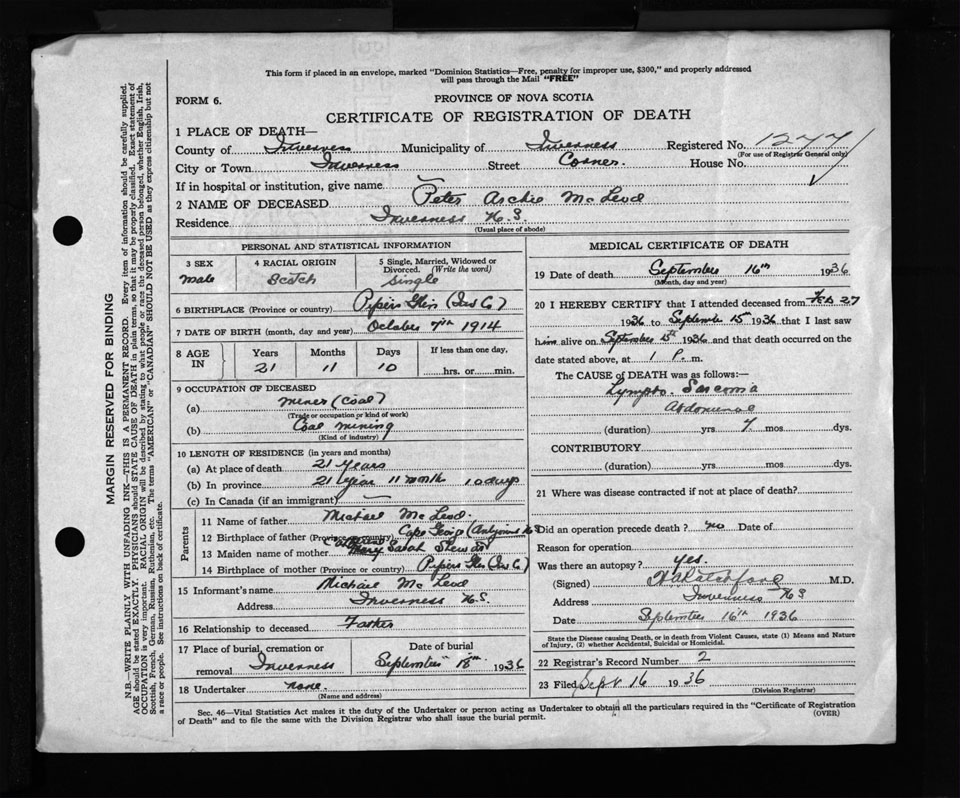 This form if placed in an envelope, marked "Dominion Statistics—Free, penalty for improper use, $300," and properly addressed
will pass through the Mail "FREE"
FORM 6.
PROVINCE OF NOVA SCOTIA
CERTIFICATE OF REGISTRATION OF DEATH
1 PLACE OF DEATH—
County of Inverness Municipality of Inverness Registered No. 1277
(For use of Registrar General only)
City or Town Inverness Street Corner. House No.
If in hospital or institution, give name
2 NAME OF DECEASED Peter Archie McLeod
Residence Inverness N.S.
(Usual place of abode)
PERSONAL AND STATISTICAL INFORMATION
3 SEX male
4 RACIAL ORIGIN Scotch
5 Single, Married, Widowed or Divorced. (Write the word) Single
6 BIRTHPLACE (Province or country) Pipers Glen (Inv Co)
7 DATE OF BIRTH (month, day and year) October 7th 1914
8 AGE IN Years 21 Months 11 Days 10 If less than one day, hrs. or min.
9 OCCUPATION OF DECEASED
(a) miner (Coal)
(Trade or occupation or kind of work)
(b) Coal mining
(Kind of industry)
10 LENGTH OF RESIDENCE (in years and months)
(a) At place of death 21 years
(b) In province 21 year 11 month 10 days
(c) In Canada (if an immigrant) —
Parents
11 Name of father Michael McLeod.
12 Birthplace of father (Province or country) Cape George (Antigonish N.S
13 Maiden name of mother Mary Sarah Stewart
14 Birthplace of mother (Province or country) Pipers Glen (Inv Co)
15 Informant's name Michael McLeod
Address Inverness N.S.
16 Relationship to deceased Father
17 Place of burial, cremation or removal Inverness
Date of burial September 18th 1936
18 Undertaker none.
(Name and address)
MEDICAL CERTIFICATE OF DEATH
19 Date of death September 16th 1936
(Month, day and year)
20 I HEREBY CERTIFY that I attended deceased from Feb 27
1936 to September 15th 1936 that I last saw
him alive on September 15th 1936 and that death occurred on the
date stated above, at 1 P. m.
The CAUSE OF DEATH was as follows:—
Lympho. Sarcoma
Abdominal
(duration) yrs 7 mos dys.
CONTRIBUTORY
(duration) yrs. mos. dys.
21 Where was disease contracted if not at place of death?
Did an operation precede death? no Date of
Reason for operation
Was there an autopsy? yes.
(Signed) M.D.
Address Inverness N S
Date September 16th 1936
State the Disease causing Death, or in death from Violent Causes, state (1) Means and Nature
of Injury, (2) whether Accidental, Suicidal or Homicidal.
22 Registrar's Record Number 2
23 Filed Sept 16 1936
(Division Registrar)
Sec. 46—Vital Statistics Act makes it the duty of the Undertaker or person acting as Undertaker to obtain all the particulars required in the "Certificate of Registration
of Death" and to file the same with the Division Registrar who shall issue the burial permit.
(OVER)
MARGIN RESERVED FOR BINDING
N.B.—WRITE PLAINLY WITH UNFADING INK—THIS IS A PERMANENT RECORD. Every item of information should be carefully supplied.
AGE should be stated EXACTLY. PHYSICIANS should STATE CAUSE OF DEATH in plain terms, so that it may be properly classified. Exact statement of
OCCUPATION is very important. RACIAL ORIGIN will be described by stating to what people or race the deceased person belonged, whether English, Irish,
Scottish, French, German, Russian, Ruthenian, etc. The terms "AMERICAN" or "CANADIAN" SHOULD NOT BE USED as they express citizenship but not
a race or people. See instructions on back of certificate.